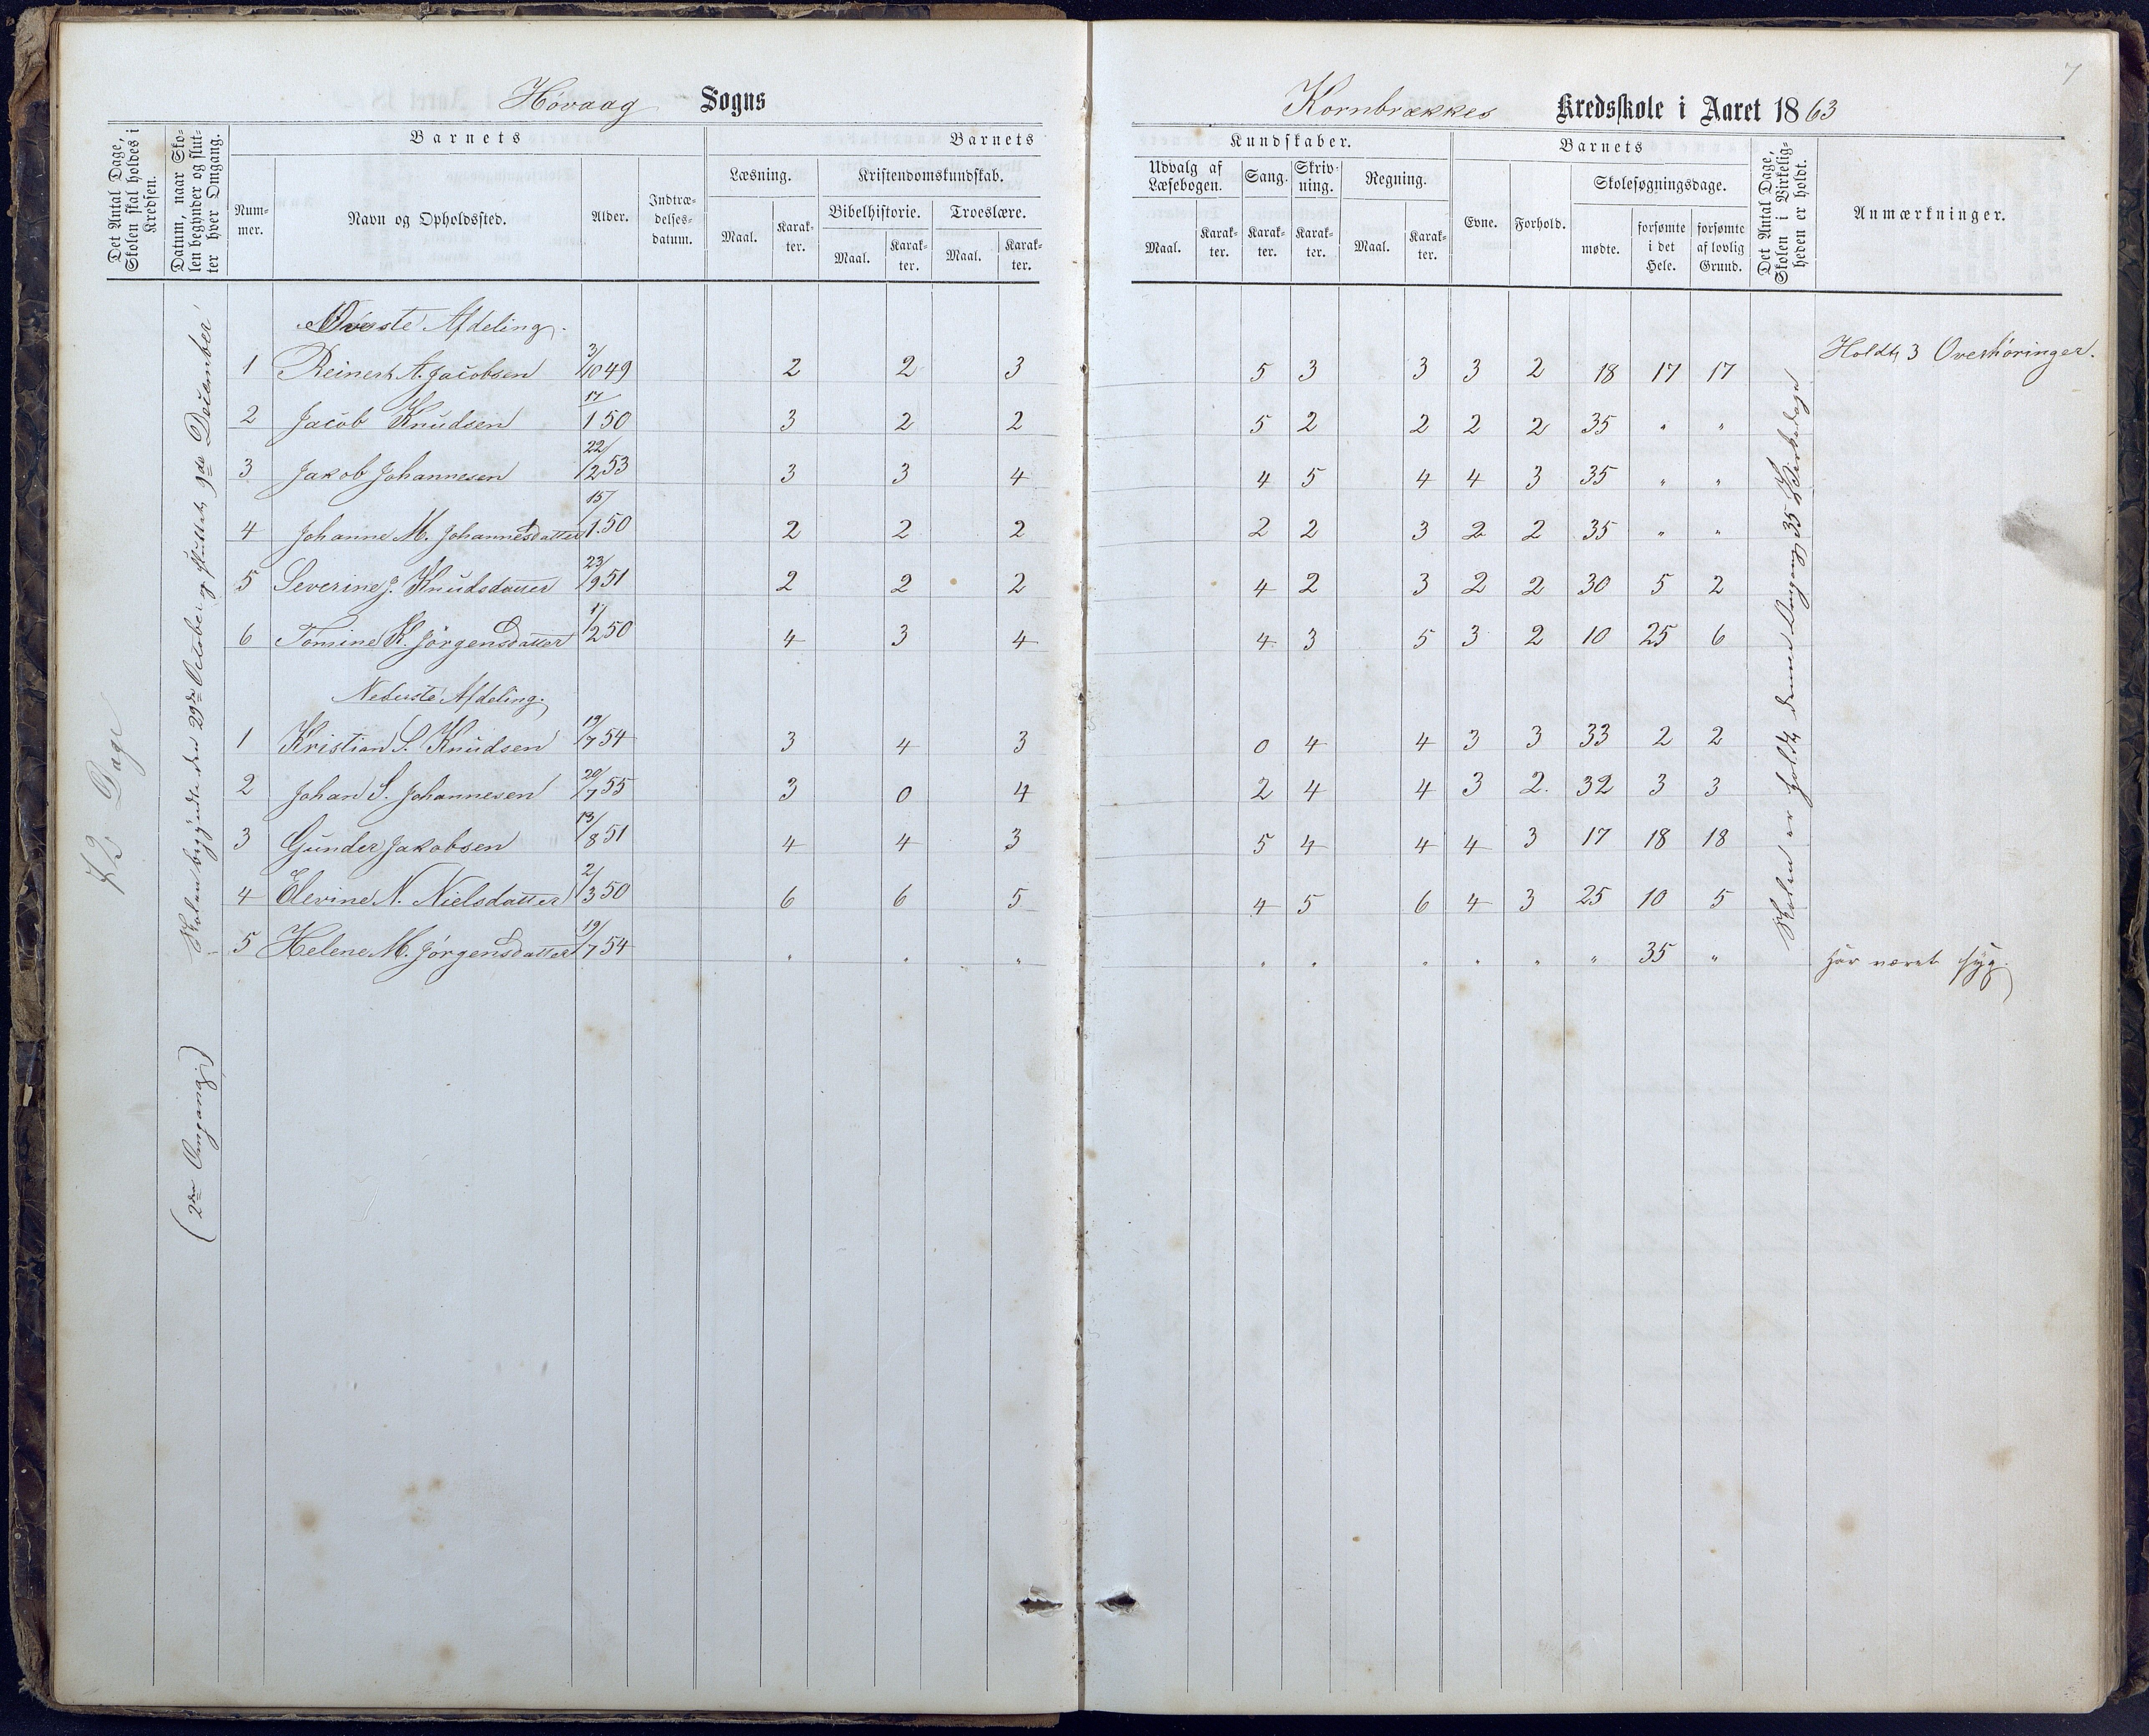 Høvaag Sogns
Kornbrækkes Kredsskole i Aaret 1863
7
Det Antal Dage, Skolen skal holdes i Kredsen.
Datum, naar Skolen begynder og slutter hver Omgang.
Barnets
Nummer.
Navn og Opholdssted.
Alder.
Indtrædelsesdatum.
Barnets
Læsning.
Maal.
Karakter.
Kristendomskundskab.
Bibelhistorie.
Maal.
Karakter.
Troeslære.
Maal.
Karakter.
Kundskaber.
Udvalg af Læsebogen.
Maal.
Karakter.
Sang.
Karakter.
Skrivning.
Karakter.
Regning.
Maal.
Karakter.
Barnets
Evne.
Forhold.
Skolesøgningsdage.
mødte.
forsømte i det Hele.
forsømte af lovlig Grund.
Det Antal Dage, Skolen i Virkeligheden er holdt.
Anmærkninger.
72 Dage
Skolen begyndte den 29de October og sluttet 9de December
(2den Omgang)
Øverste Afdeling.
Holdt 3 Overhøringer.
1 Reinert A. Jacobsen 3/10 49 2 2 3 5 3 3 3 2 18 17 17
2 Jacob Knudsen 17/1 50 3 2 2 5 2 2 2 2 35 " "
3 Jakob Johannesen 22/12 53 3 3 4 4 5 4 4 3 35 " "
4 Johanne M. Johannesdatter 15/1 50 2 2 2 2 2 3 2 2 35 " "
5 Severine J. Knudsdatter 23/9 51 2 2 2 4 2 3 2 2 30 5 2
6 Tomine K. Jörgensdatter 1/2 50 4 3 4 4 3 5 3 2 10 25 6
Nederste Afdeling.
1 Kristian S. Knudsen 19/7 54 3 4 3 0 4 4 3 3 33 2 2
2 Johan S. Johannesen 20/7 55 3 0 4 2 4 4 3 2. 32 3 3
3 Gunder Jakobsen 13/8 51 4 4 3 5 4 4 4 3 17 18 18
4 Elevine N. Nielsdatter 2/3 50 6 6 5 4 5 6 4 3 25 10 5
5 Helene M. Jörgensdatter 19/7 54 " " " " " " " " " 35 " har været syg.
Skolen er holdt denne Omgang 35 Virkedage